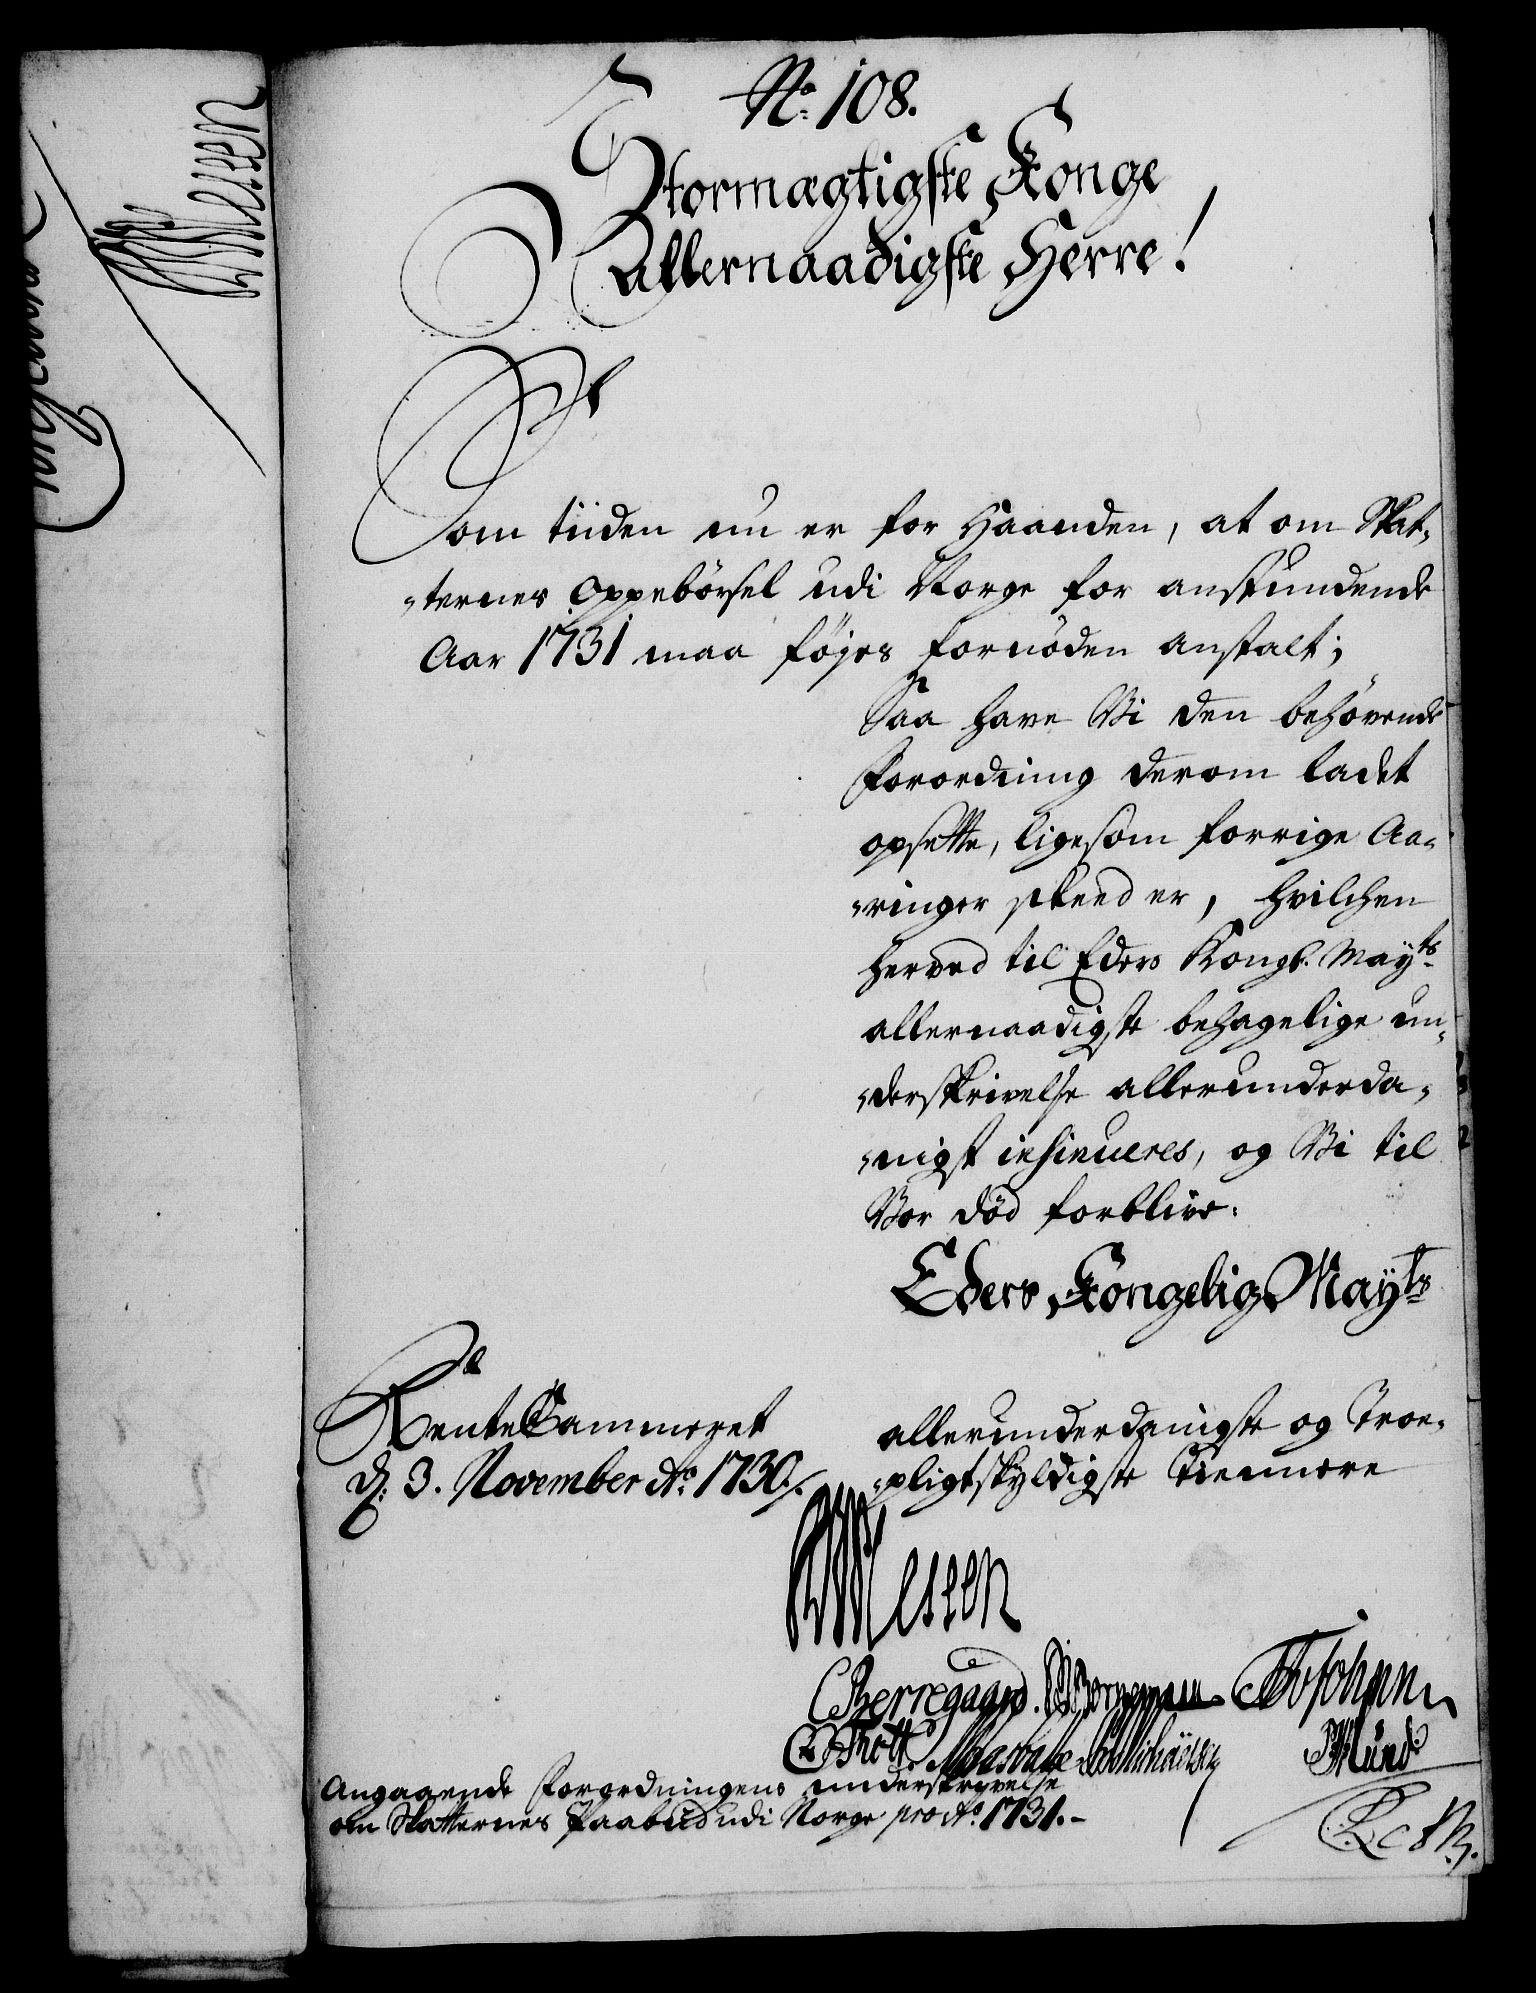 No. 108.
Stormægtigste Konge
Allernaadigste Herre!
Som tiiden nu er for Haanden, at om Skat-
-ternes oppebørsel udi Norge for anstundende
Aar 1731 maa føjes fornøden anstalt;
Saa have Vi den behøvende
Forordning derom ladet
opsette, ligesom forrige Aa-
-ringer skeed er, hvilchen
herved til Eders Kongl. Mayts
allernaadigste behagelige un-
-derskrivelse allerunderda-
-nigst insinueres, og Vi til
Vor død forblive.
Eders Kongelig Mayts
RenteCammeret
d. 3. November Ao. 1730.
allerunderdanigste og Troe-
-pligtskyldigste Tiennere
CBerregaard.
OThott
Lund
Angaaende Forordningens underskrivelse
om Skatternes Paabud udi Norge pro Ao. 1731.-